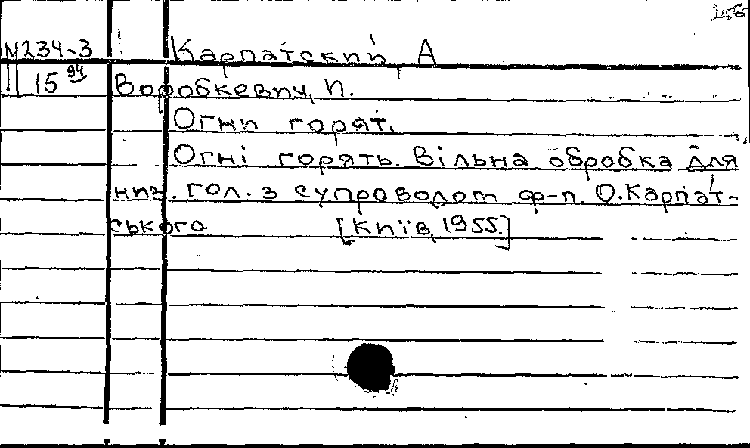 М234-3 Карпатский, А
15 94 Воробкевич, И.
Огни горят.
Огні горять. Вільна обробка для
низ. гол. з супроводом ф-п. О. Карпат-
ського [Київ, 1955.]